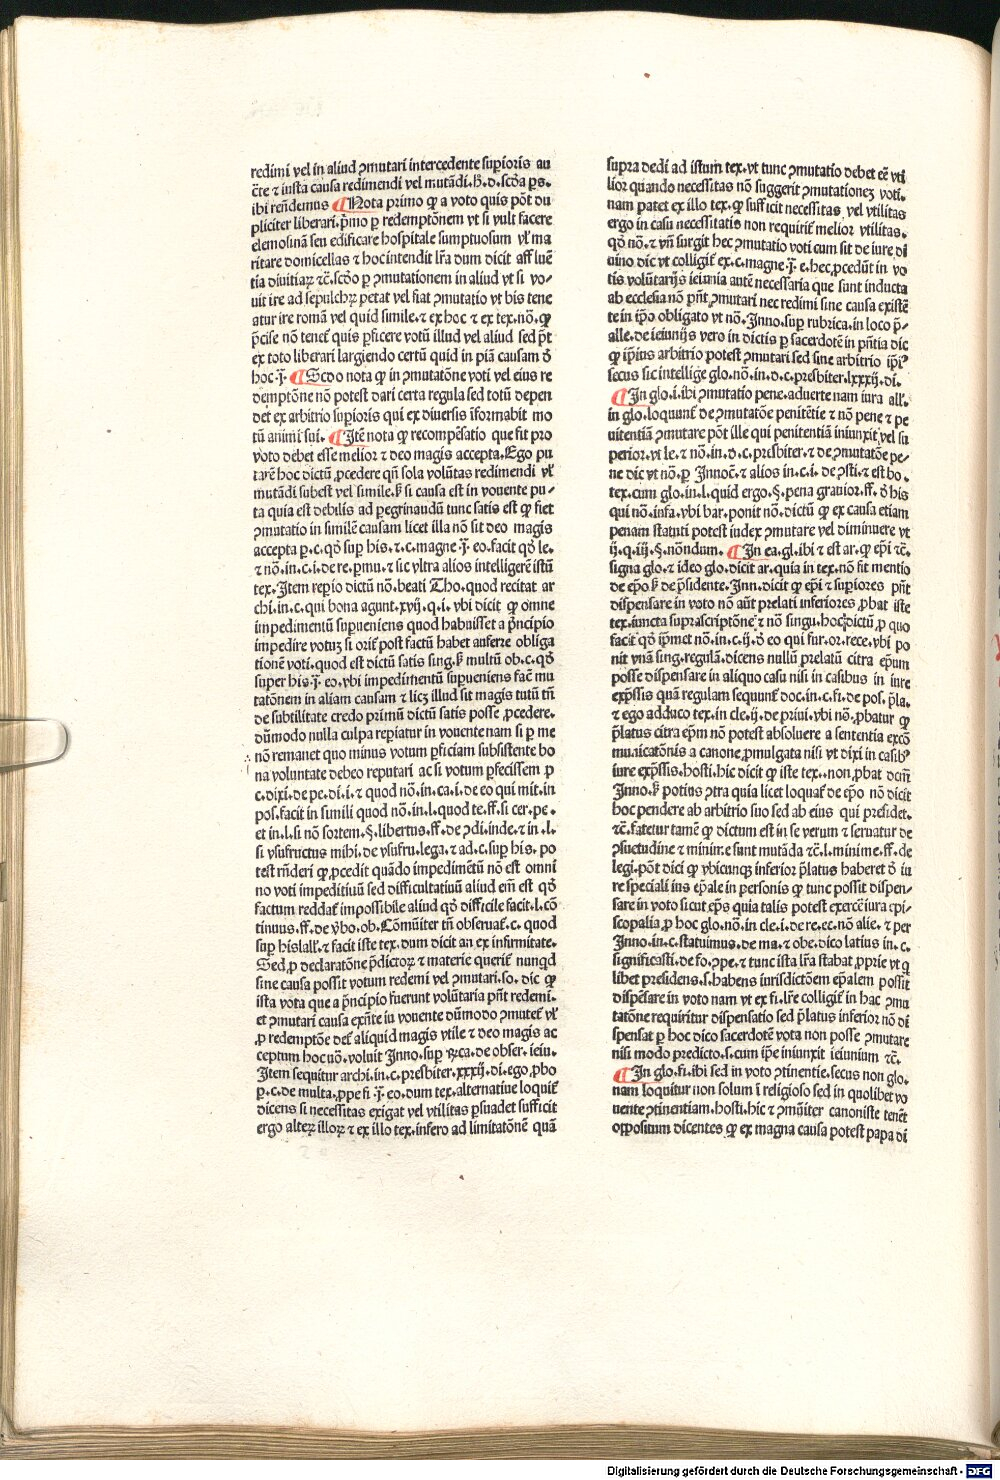 redimi vel in aliud ꝯmutari intercedente supioris au
c̄te ⁊ iusta causa redimendi vel mutādi.h̄.d.scd̄a ps.
ibi rn̄demus ¶ Nota primo ꝙ a voto quis pōt du
pliciter liberari.p̄mo ꝑ redemptōnem vt si vult facere
elemosinā seu edificare hospitale sumptuosum vl̓ ma
ritare domicellas ⁊ hoc intendit lr̄a dum dicit aff luē
tia diuitiaꝝ ⁊c̄.scd̄o ꝑ ꝯmutationem in aliud vt si vo⸗
uit ire ad sepulchꝝ petat vel fiat ꝯmutatio vt his tene
atur ire romā vel quid simile.⁊ ex hoc ⁊ ex tex.nō.ꝙ
p̄cise nō tenet̄ quis ꝑficere votū illud vel aliud sed pōt
ex toto liberari largiendo certū quid in piā causam ō
hoc.j̄. ¶ Scd̄o nota ꝙ in ꝯmutatōne voti vel eius re
demptōne nō potest dari certa regula sed totū depen
det ex arbitrio supioris qui ex diuersis īformabit mo
tū animi sui. ¶ Itē nota ꝙ recompēsatio que fit pro
voto debet esse melior ⁊ deo magis accepta.Ego pu
tarē hoc dictū ꝓcedere qn̄ sola volūtas redimendi vl̓
mutādi subest vel simile.ꝶ si causa est in vouente pu⸗
ta quia est debilis ad ꝑegrinaudū tunc satis est ꝙ fiet
ꝯmutatio in similē causam licet illa nō sit deo magis
accepta ꝑ.c.qd̄ sup his.⁊.c.magne.j̄.eo.facit qd̄ le.
⁊ nō.in.c.i.de re.ꝑmu.⁊ sic vltra alios intelligerē istū
tex.Item reꝑio dictū nō.beati Tho.quod recitat ar
chi.in.c.qui bona agunt.xvij.q.i.vbi dicit ꝙ omne
impedimentū supueniens quod habuisset a p̄ncipio
impedire votuꝫ si orit̄ post factū habet auferre obliga
tionē voti.quod est dictū satis sing.ꝶ multū ob.c.qd̄
super his.j̄.eo.vbi impedimētū supueniens fac̄ mu
tatōnem in aliam causam ⁊ licꝫ illud sit magis tutū tn̄
de subtilitate credo primū dictū satis posse ꝓcedere.
dūmodo nulla culpa reꝑiatur in vouente nam si ꝑ me
nō remanet quo minus votum ꝑficiam subsistente bo
na voluntate debeo reputari ac si votum ꝑfecissem ꝑ
c.dixi.de pe.di.i.⁊ quod nō.in.ca.i.de eo qui mit.in
pos.facit in simili quod nō.in.l.quod te.ff.si cer.pe.
et in.l.si nō sortem.§.libertus.ff.de ꝯdi.inde.⁊ in.l.
si vsufructus mihi.de vsufru.lega.⁊ ad.c.sup his.po
test rn̄deri ꝙ ꝓcedit quādo impedimētū nō est omni
no voti impeditiuū sed difficultatiuū aliud em̄ est qd̄
factum reddat̄ impossibile aliud qd̄ difficile facit.l.cō
tinuus.ff.de v̄bo.ob.Cōmūiter tn̄ obseruat̄.c.quod
sup his lall̓.⁊ facit iste tex.dum dicit an ex infirmitate.
Sed ꝓ declaratōne p̄dictoꝝ ⁊ materie querit̄ nunqd
sine causa possit votum redemi vel ꝯmutari.so.dic ꝙ
ista vota que a p̄ncipio fuerunt volūtaria pn̄t redemi.
et ꝯmutari causa exn̄te iu vouente dūmodo ꝯmutet̄ vl̓
ꝓ redemptōe det̄ aliquid magis vtile ⁊ deo magis ac
ceptum hoc uō.voluit Inno.sup ꝶca.de obser.ieiu.
Item sequitur archi.in.c.presbiter.xxxij.di.ego.ꝓbo
ꝑ.c.de multa.ꝓpe fi.j̄.eo.dum tex.alternatiue loquit̄
dicens si necessitas exigat vel vtilitas ꝑsuadet sufficit
ergo alteꝝ illoꝝ ⁊ ex illo tex.infero ad limitatōnē quā
supra dedi ad istum tex.vt tunc ꝯmutatio debet eē vti
lior quando necessitas nō suggerit ꝯmutationeꝫ voti.
nam patet ex illo tex.ꝙ sufficit necessitas vel vtilitas
ergo in casu necessitatis non requirit̄ melior vtilitas.
qd̄ nō.⁊ vn̄ surgit hec ꝯmutatio voti cum sit de iure di
uino dic vt colligit̄ ex.c.magne.j̄.e.hec ꝓcedūt in vo
tis volūtarijs ieiunia autē necessaria que sunt inducta
ab ecclesia nō pn̄t ꝯmutari nec redimi sine causa existē
te in ip̄o obligato vt nō.Inno.sup rubrica.in loco p̄⸗
alle.de ieiunijs vero in dictis ꝑ sacerdotē in pn̄tia dic
ꝙ ip̄ius arbitrio potest ꝯmutari sed sine arbitrio ip̄iꝰ
secus sic intellige glo.nō.in.d.c.presbiter.lxxxij.di.
¶ In glo.i.ibi ꝯmutatio pene.aduerte nam iura all̓.
in glo.loquunt̄ de ꝯmutatōe penitētie ⁊ nō pene ⁊ pe
uitentiā ꝯmutare pōt ille qui penitentiā iniunxit vel su
perior.vt le.⁊ nō.in.d.c.presbiter.⁊ de ꝯmutatōe pe⸗
ne dic vt nō.ꝑ Innoc̄.⁊ alios in.c.i.de ꝯsti.⁊ est bo.
tex.cum glo.in.l.quid ergo.§.pena grauior.ff.ō his
qui nō.infa.vbi bar.ponit nō.dictū ꝙ ex causa etiam
penam statuti potest iudex ꝯmutare vel diminuere vt
ij.q.iij.§.nōndum. ¶ In ea.gl.ibi ⁊ est ar.ꝙ ep̄i ⁊c̄.
signa glo.⁊ ideo glo.dicit ar.quia in tex.nō fit mentio
de ep̄o ꝶ de p̄sidente.Inn.dicit ꝙ ep̄i ⁊ suꝑiores pn̄t
dispensare in voto nō aūt prelati inferiores ꝓbat iste
tex.iuncta suprascriptōne ⁊ nō singu.hoc dictū ꝓ quo
facit qd̄ ip̄met nō.in.c.ij.ō eo qui fur.or.rece.vbi po
nit vnā sing.regulā.dicens nullū prelatū citra ep̄um
posse dispensare in aliquo casu nisi in casibus in iure
exp̄ssis quā regulam sequunt̄ doc.in.c.fi.de pos.p̄la.
⁊ ego adduco tex.in cle.ij.de priui.vbi nō.ꝓbatur ꝙ
p̄latus citra ep̄m nō potest absoluere a sententia excō
municatōnis a canone ꝓmulgata nisi vt dixi in casibꝰ
iure exp̄ssis.hosti.hic dicit ꝙ iste tex..non ꝓbat dcm̄
Inno.ꝶ potius ꝯtra quia licet loquat̄ de ep̄o nō dicit
hoc pendere ab arbitrio suo sed ab eius qui presidet.
⁊c̄.fatetur tamē ꝙ dictum est in se verum ⁊ seruatur de
ꝯsuetudine ⁊ minime sunt mutāda ⁊c̄ l.minime.ff.de
legi.pōt dici ꝙ vbicunqꝫ inferior p̄latus haberet ō iu
re speciali ius ep̄ale in personis ꝙ tunc possit dispen⸗
sare in voto sicut ep̄s quia talis potest exercē iura epi⸗
scopalia ꝓ hoc glo.nō.in cle.i.de re.ec.nō alie.⁊ per
Inno.in.c.statuimus.de ma.⁊ obe.dico latius in.c.
significasti.de fo.ꝯpe.⁊ tunc ista lr̄a stabat ꝓprie vt q̄
libet presidens.s.habens iurisdictōem ep̄alem possit
dispēsare in voto nam vt ex fi.lr̄e colligit̄ in hac ꝯmu
tatōne requiritur dispensatio sed p̄latus inferior nō di
spensat ꝑ hoc dico sacerdotē vota non posse ꝯmutare
nisi modo predicto.s.cum ip̄e iniunxit ieiunium ⁊c̄.
¶ In glo.fi.ibi sed in voto ꝯtinentie.secus non glo.
nam loquitur uon solum ī religioso sed in quolibet vo
uente ꝯtinentiam.hosti.hic ⁊ ꝯmūiter canoniste tenēt
oppositum dicentes ꝙ ex magna causa potest papa di
Digitalisierung gefördert durch die Deutsche Forschungsgemeinschaft - DFG